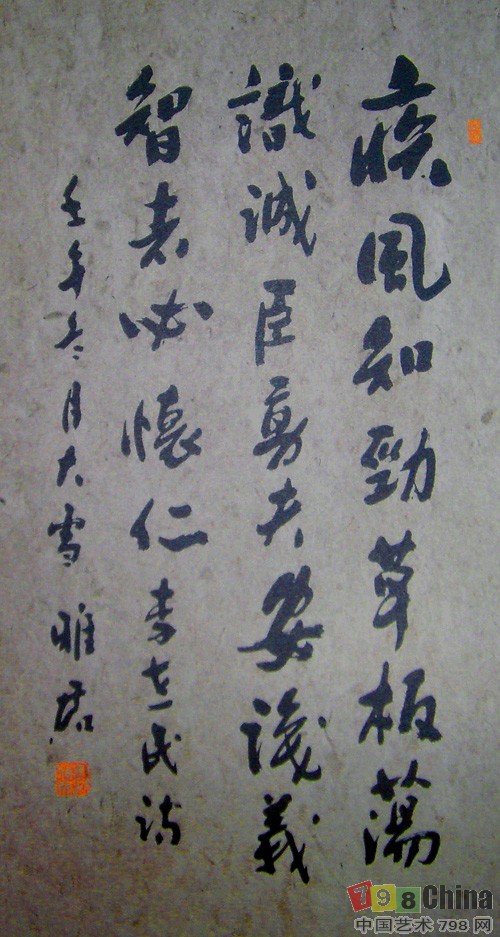 疾風知勁草板蕩
識誠臣勇夫安識義
智者必懷仁 李世民詩
冬月大雪 雅君
798China
中国艺术798网